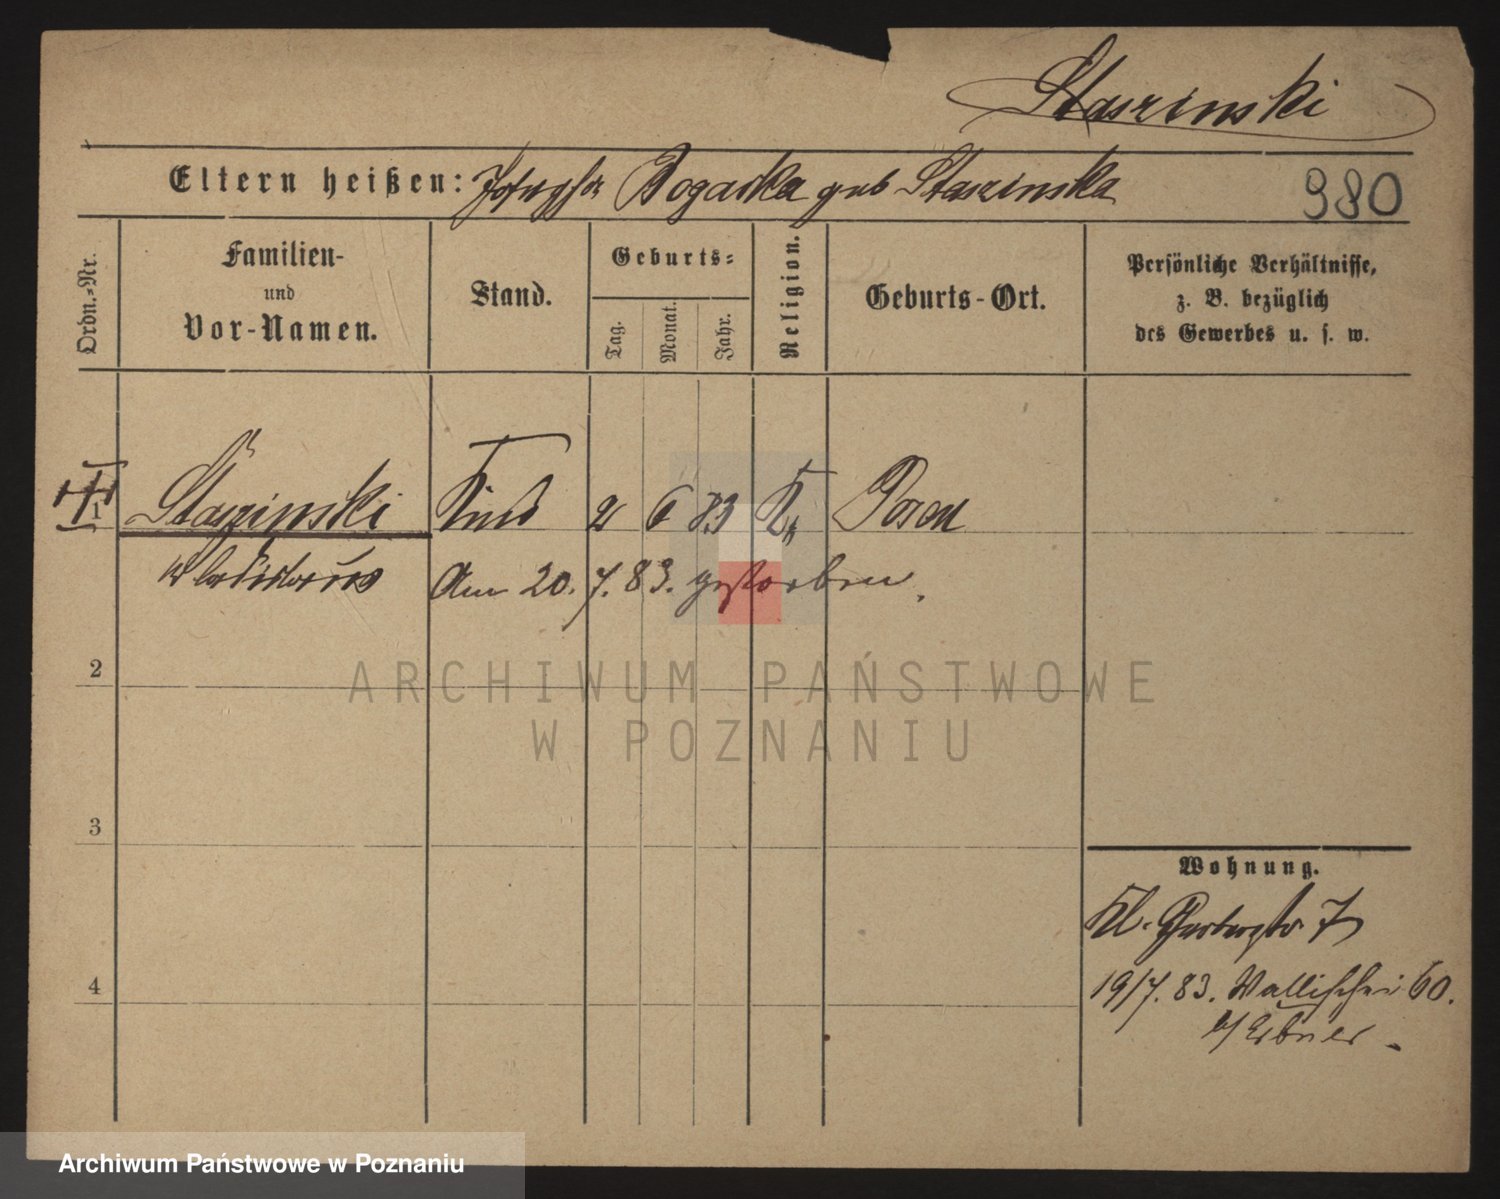 Staszinski
Eltern heißen: Josepha Bogacka geb Staszinska 980
Ordn.-Nr.
Familien-
und
Vor-Namen.
Stand.
Geburts-
Tag.
Monat.
Jahr.
Religion.
Geburts-Ort.
Persönliche Verhältnisse,
z. B. bezüglich
des Gewerbes u. s. w.
1 Staszinski Kind 2 6 83 K Posen
Wladislaus Am 20. 7. 83. gestorben.
2
ARCHIWUM PAŃSTWOWE
W POZNANIU
3
Wohnung.
Kl. Gerberstr 7
4
19/7. 83. Wallischei 60.
b/
Archiwum Państwowe w Poznaniu